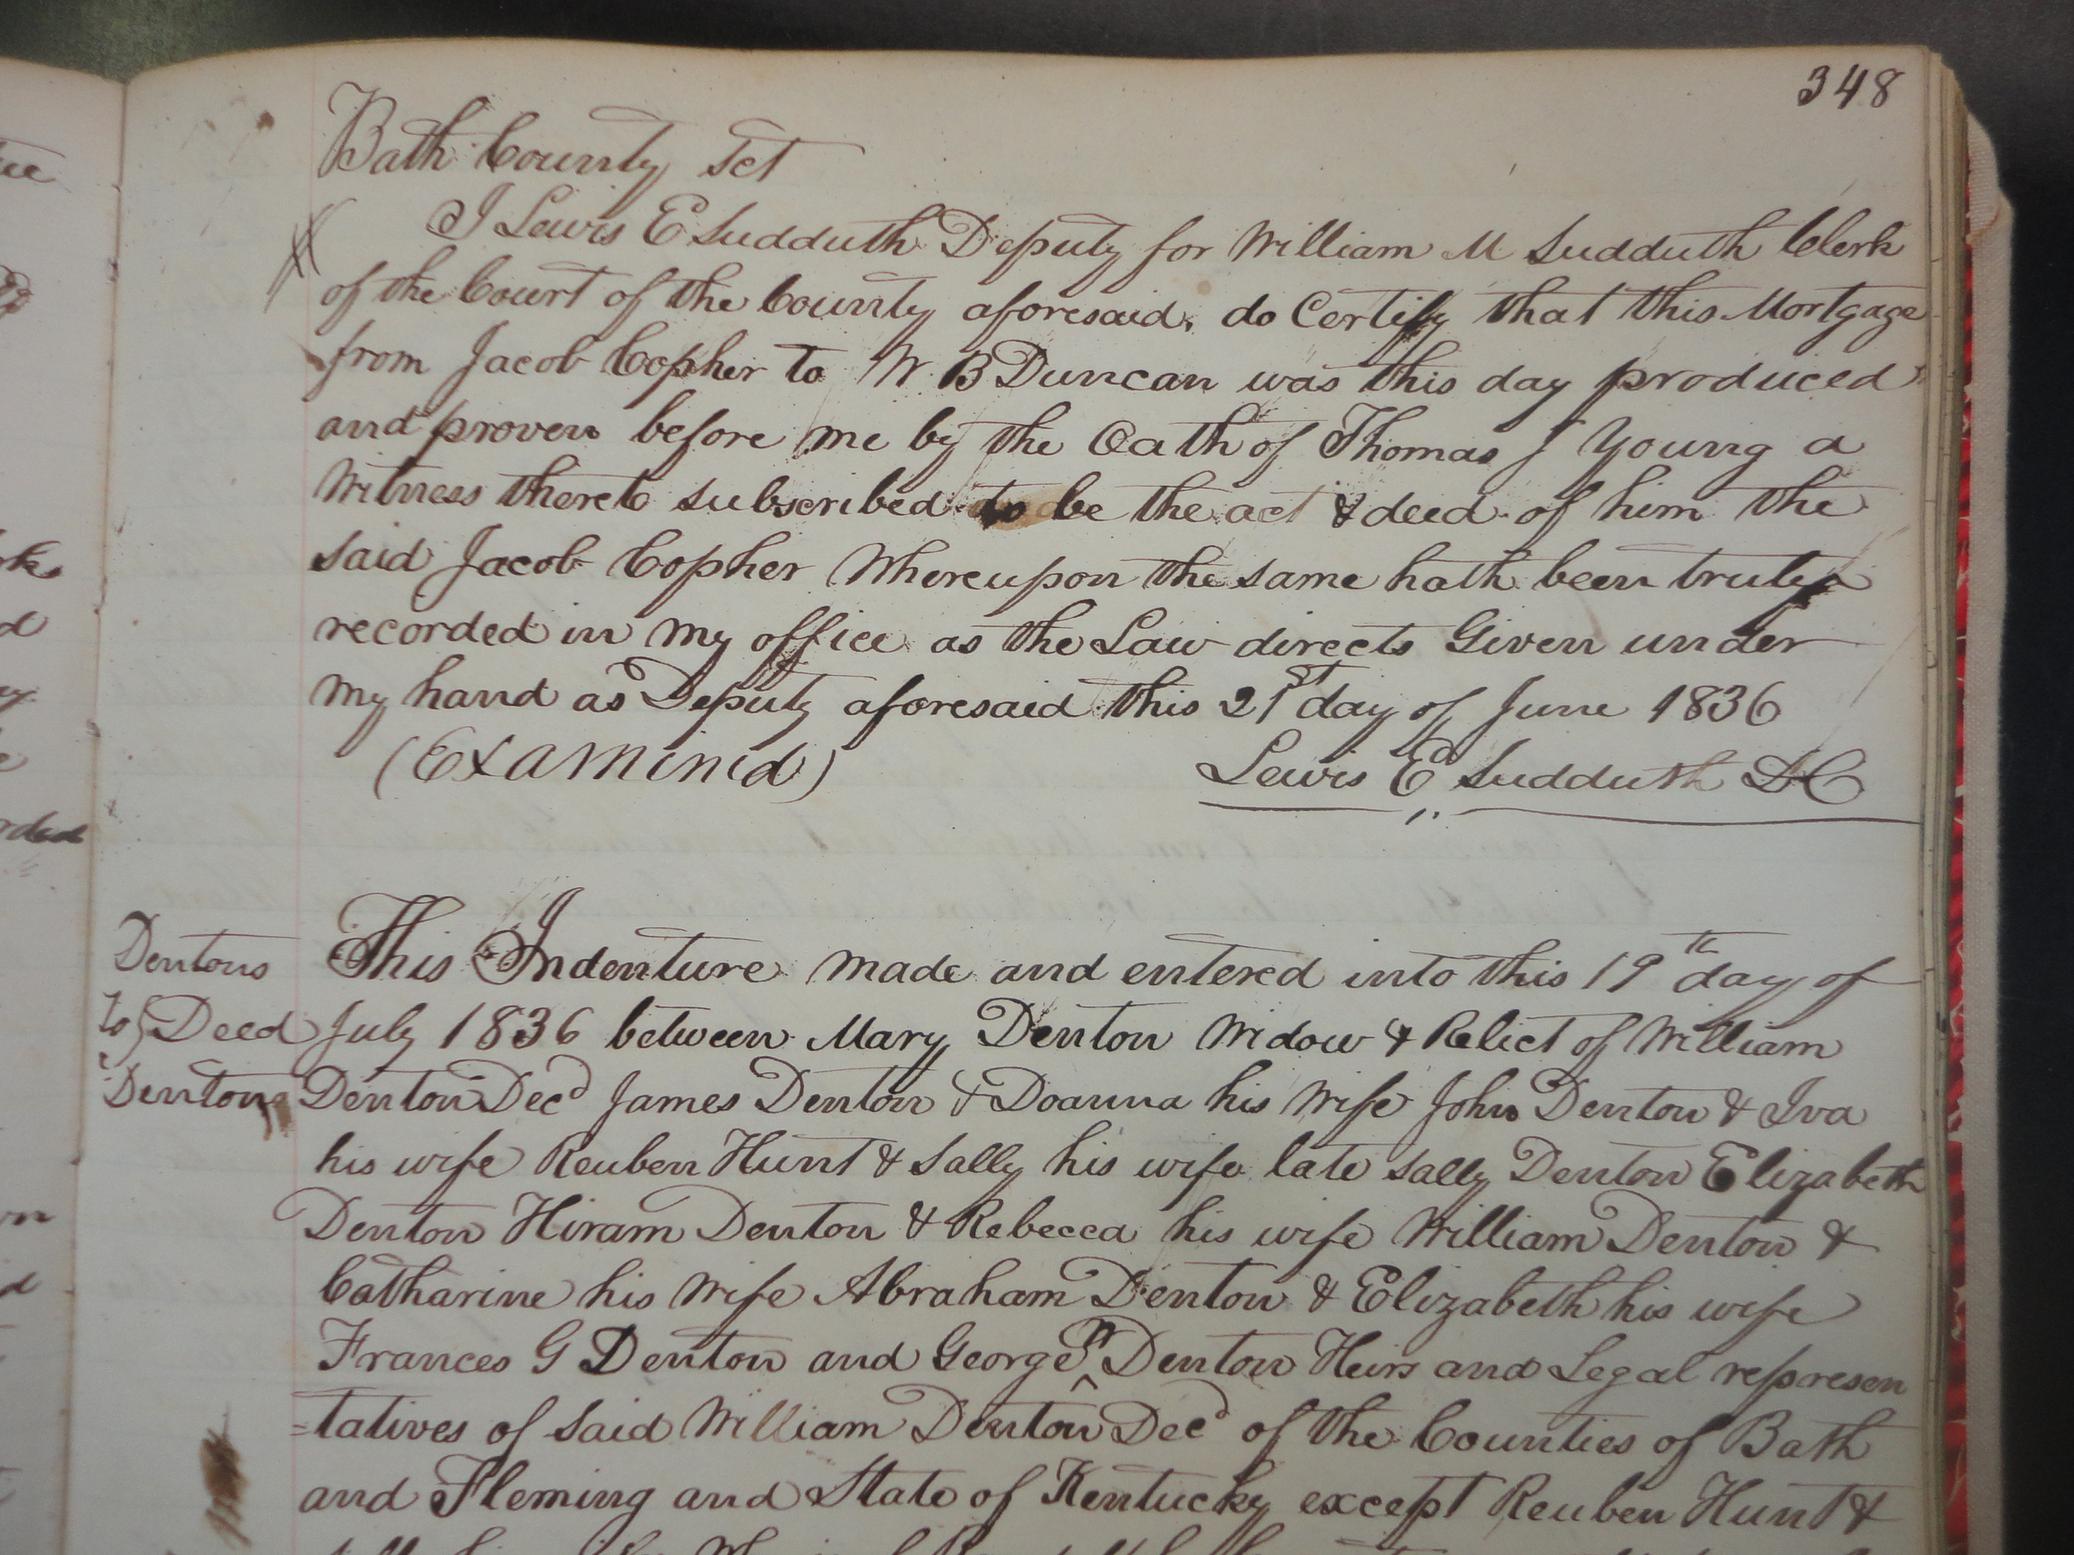 348
Bath County Sct
I Lewis E Sudduth Deputy for William M Sudduth Clerk
of the Court of the County aforesaid, do Certify that this Mortgage
from Jacob Copher to W. B Duncan was this day produced
and proven before me by the Oath of Thomas J Young a
Witness thereto subscribed to be the act & deed of him the
said Jacob Copher Whereupon the same hath been truly
recorded in my office as the Law directs Given under
my hand as Deputy aforesaid this 21st day of June 1836
(Examined)
Lewis E Sudduth DC
Dentons
To } Deed
Dentons
This Indenture made and entered into this 19th day of
July 1836 between Mary Denton Widow & Relict of William
Denton Decd James Denton & Doanna his wife John Denton & Iva
his wife Reuben Hunt & Sally his wife late Sally Denton Elizabeth
Denton Hiram Denton & Rebecca his wife William Denton &
Catharine his wife Abraham Denton & Elizabeth his wife
Frances G Denton and George Denton Heirs and Legal represen
=tatives of said William Denton Decd of the Counties of Bath
and Fleming and State of Kentucky except Reuben Hunt &